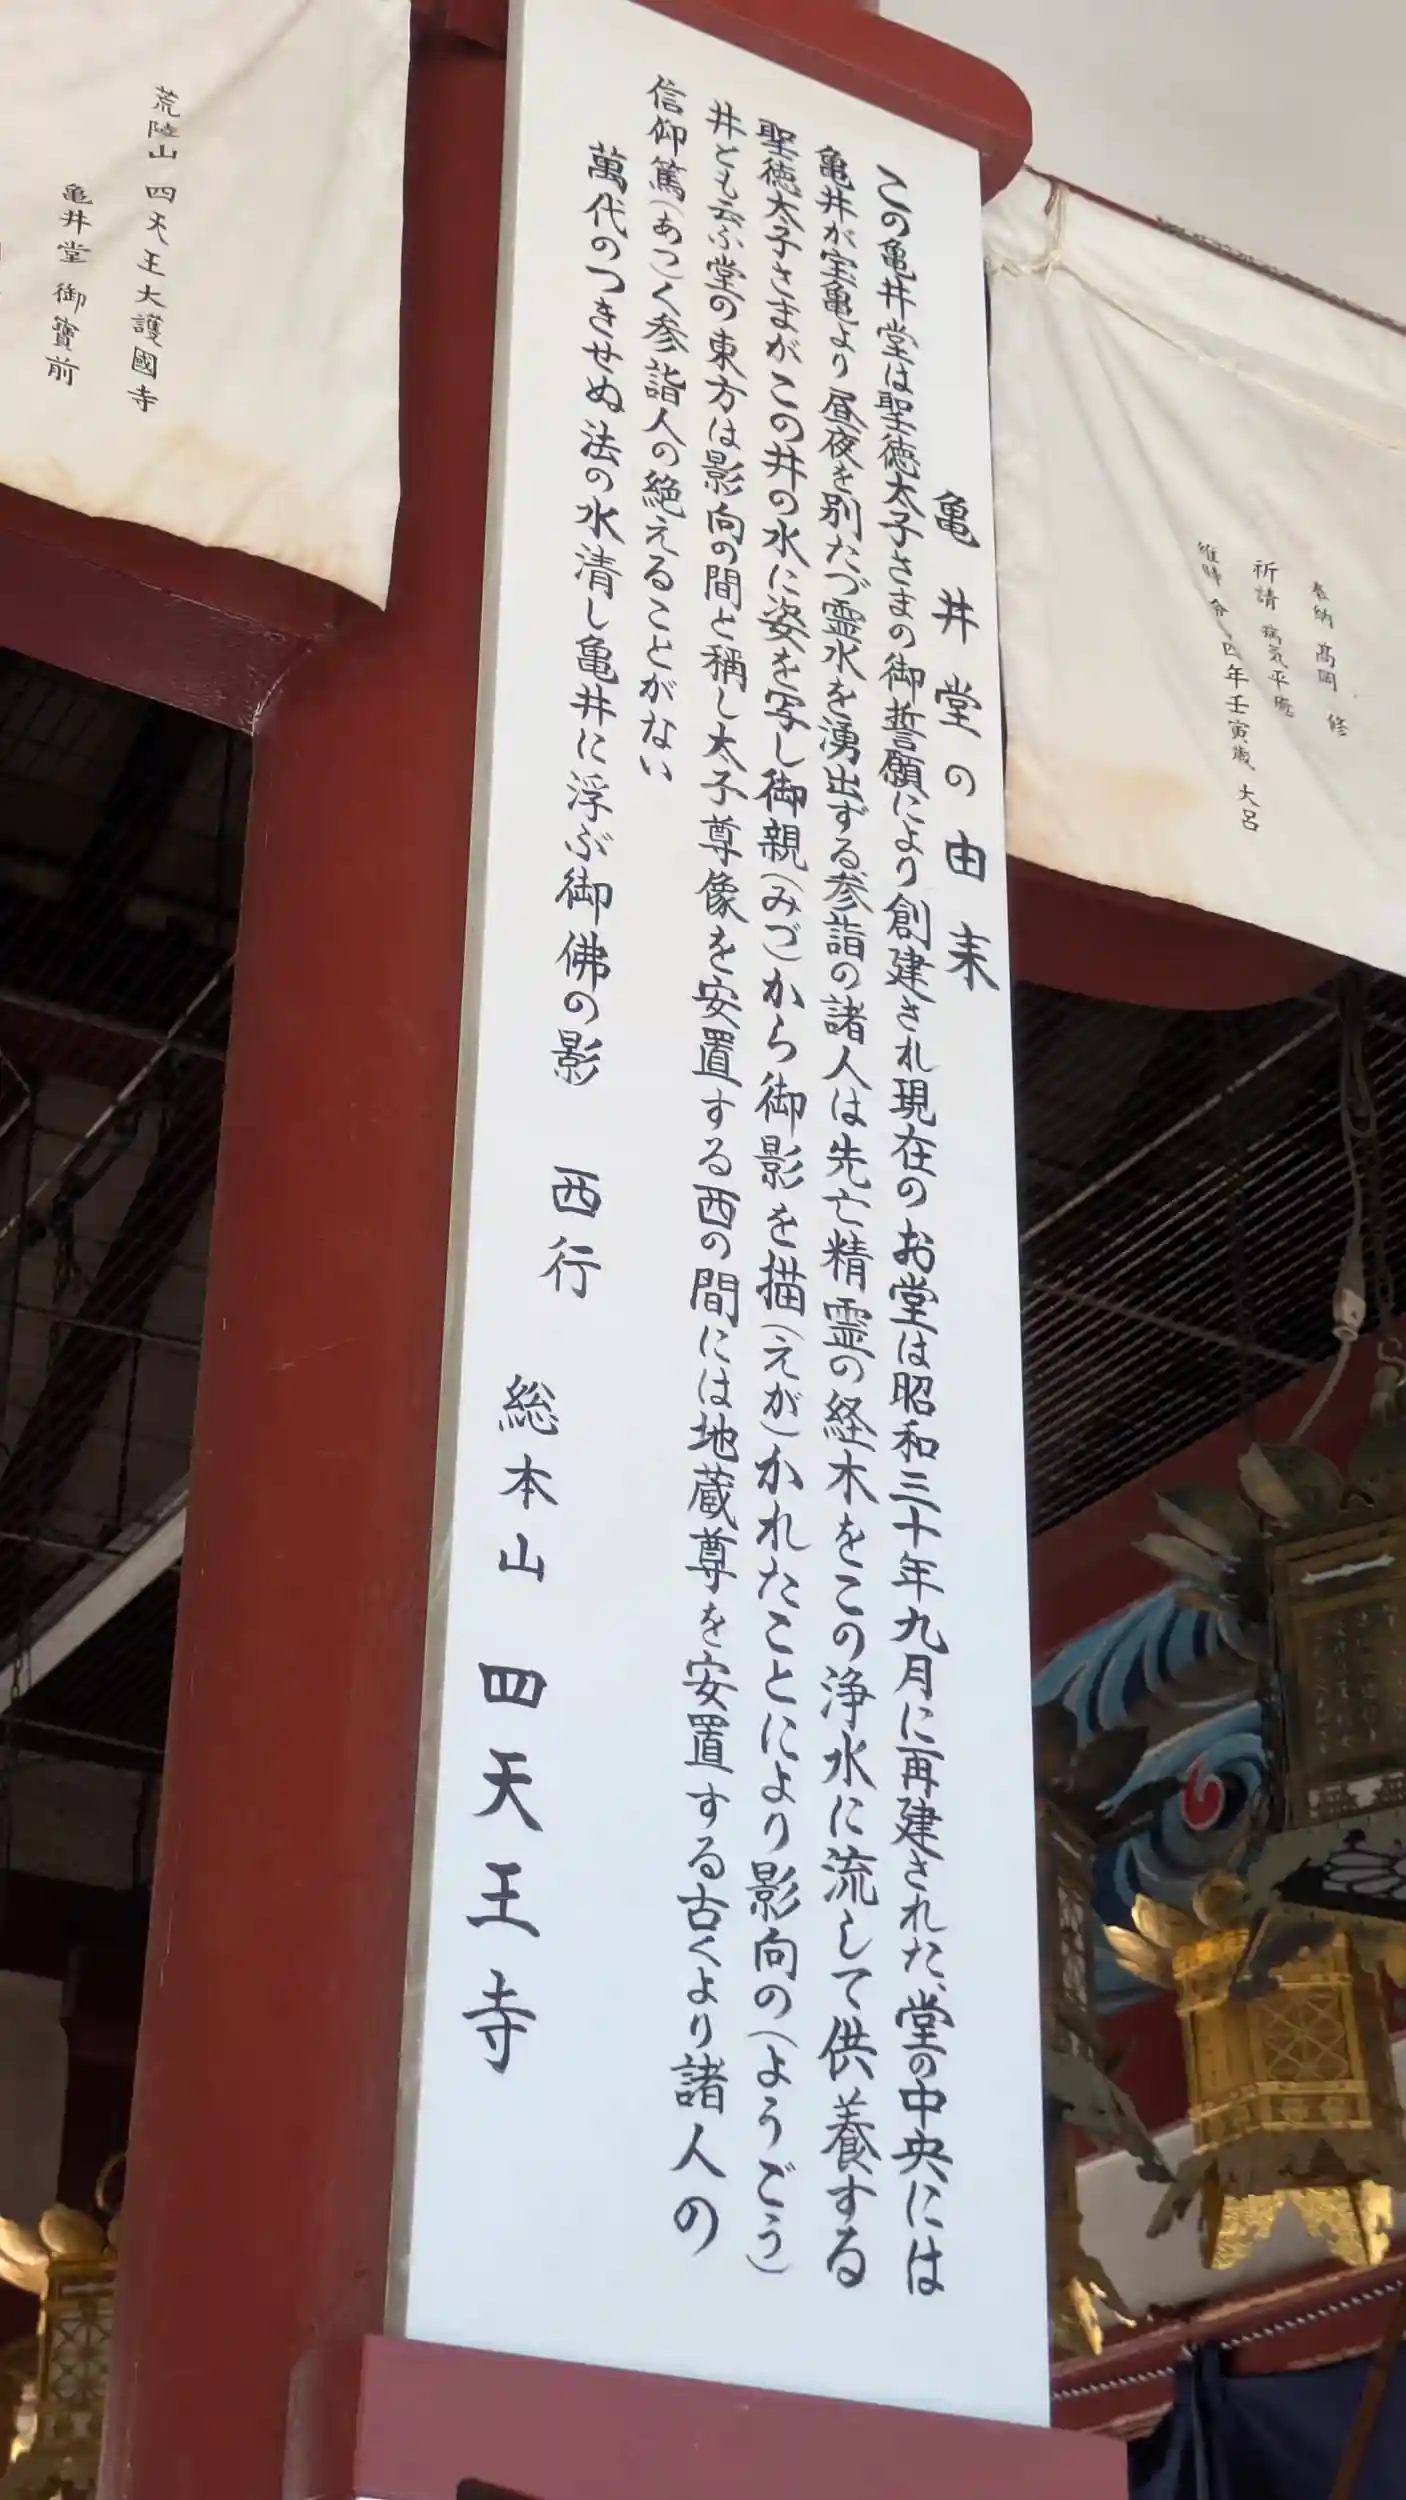 亀井堂の由来
この亀井堂は聖徳太子さまの御誓願により創建され現在のお堂は昭和三十年九月に再建された、堂の中央には
亀井が宝亀より昼夜を別たづ霊水を湧出ずる参詣の諸人は先亡精霊の経木をこの浄水に流して供養する
聖徳太子さまがこの井の水に姿を写し御親(みづ)から御影を描(えが)かれたことにより影向の(ようごう)
井とも云ふ堂の東方は影向の間と稱し太子尊像を安置する西の間には地蔵尊を安置する古くより諸人の
信仰篤(あつ)く参詣人の絶えることがない
萬代のつきせぬ法の水清し亀井に浮ぶ御佛の影 西行
総本山 四天王寺
荒陵山 四天王大護國寺
亀井堂 御寶前
奉納 髙岡 修
祈請 病気平癒
維時 令 四年壬寅歳 大呂